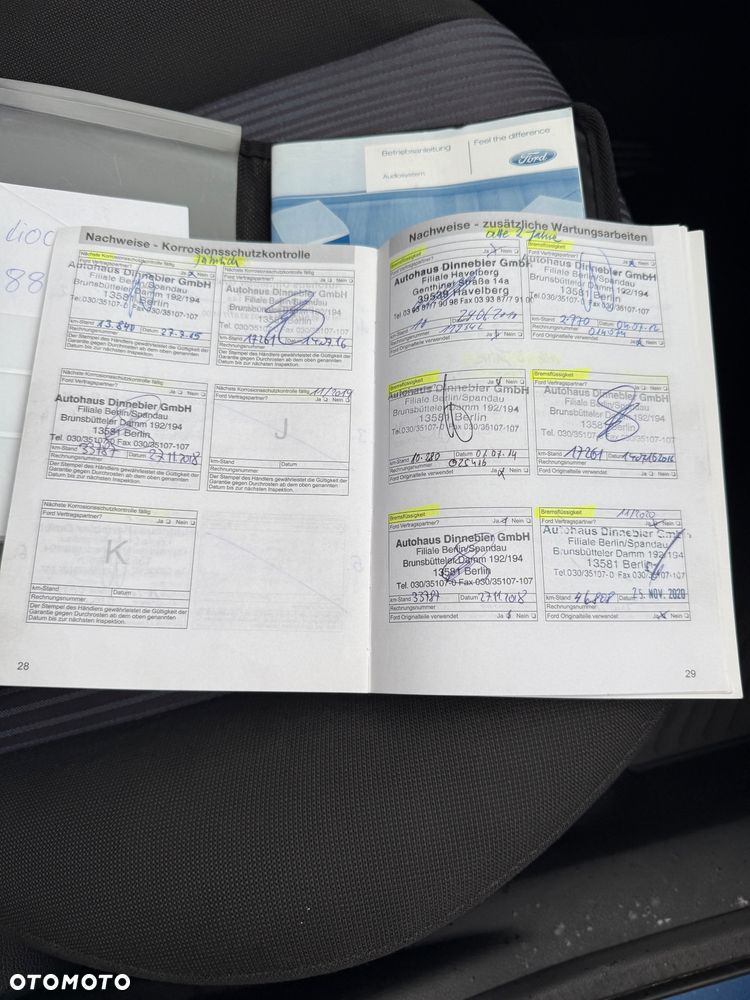 Betriebsanleitung
Feel the difference
Audiosystem
Ford
400
88
Nachweise - Korrosionsschutzkontrolle
Nächste Korrosionsschutzkontrolle fällig
Ford Vertragspartner? Ja Nein
Autohaus Dinnebier GmbH
Filiale Berlin/Spandau
Brunsbütteler Damm 192/194
13581 Berlin
Tel. 030/35107-0 Fax 030/35107-107
km-Stand 13.840 Datum 27.3.15
Rechnungsnummer
Der Stempel des Händlers gewährleistet die Gültigkeit der
Garantie gegen Durchrosten ab dem oben genannten
Datum bis zur nächsten Inspektion.
Ford Vertragspartner? Ja Nein
Autohaus Dinnebier GmbH
Filiale Berlin/Spandau
Brunsbütteler Damm 192/194
13581 Berlin
km-Stand 17261 Datum 14.07.16
Rechnungsnummer
Der Stempel des Händlers gewährleistet die Gültigkeit der
Garantie gegen Durchrosten ab dem oben genannten
Datum bis zur nächsten Inspektion.
Nächste Korrosionsschutzkontrolle fällig
Ford Vertragspartner? Ja Nein
Autohaus Dinnebier GmbH
Filiale Berlin/Spandau
Brunsbütteler Damm 192/194
13581 Berlin
Tel. 030/35107-0 Fax 030/35107-107
km-Stand 33787 Datum 27.11.2018
Rechnungsnummer
Der Stempel des Händlers gewährleistet die Gültigkeit der
Garantie gegen Durchrosten ab dem oben genannten
Datum bis zur nächsten Inspektion.
Nächste Korrosionsschutzkontrolle fällig 11/2019
Ford Vertragspartner? Ja Nein
J
km-Stand Datum
Rechnungsnummer
Der Stempel des Händlers gewährleistet die Gültigkeit der
Garantie gegen Durchrosten ab dem oben genannten
Datum bis zur nächsten Inspektion.
Nächste Korrosionsschutzkontrolle fällig
Ford Vertragspartner? Ja Nein
K
km-Stand Datum
Rechnungsnummer
Der Stempel des Händlers gewährleistet die Gültigkeit der
Garantie gegen Durchrosten ab dem oben genannten
Datum bis zur nächsten Inspektion.
28
Nachweise - zusätzliche Wartungsarbeiten
alle 2 Jahre
Bremsflüssigkeit
Ford Vertragspartner? Ja Nein
Autohaus Dinnebier GmbH
Filiale Havelberg
Genthiner Straße 14a
39539 Havelberg
km-Stand Datum
Rechnungsnummer
Ford Originalteile verwendet Ja Nein
Bremsflüssigkeit
Ford Vertragspartner? Ja Nein
Autohaus Dinnebier GmbH
Filiale Berlin/Spandau
Brunsbütteler Damm 192/194
13581 Berlin
Tel.030/35107-0 Fax 030/35107-107
km-Stand 2970 Datum
Rechnungsnummer
Ford Originalteile verwendet Ja Nein
Bremsflüssigkeit
Ford Vertragspartner? Ja Nein
Autohaus Dinnebier GmbH
Filiale Berlin/Spandau
Brunsbütteler Damm 192/194
13581 Berlin
Tel.030/35107-0 Fax 030/35107-107
km-Stand 10.280 Datum 01.07.14
Rechnungsnummer
Ford Originalteile verwendet Ja Nein
Bremsflüssigkeit
Ford Vertragspartner? Ja Nein
Autohaus Dinnebier GmbH
Filiale Berlin/Spandau
Brunsbütteler Damm 192/194
13581 Berlin
Tel.030/35107-0 Fax 030/35107-107
km-Stand 17261 Datum 14.07.2016
Rechnungsnummer
Ford Originalteile verwendet Ja Nein
Bremsflüssigkeit
Ford Vertragspartner? Ja Nein
Autohaus Dinnebier GmbH
Filiale Berlin/Spandau
Brunsbütteler Damm 192/194
13581 Berlin
Tel. 030/35107-0 Fax 030/35107-107
km-Stand 33787 Datum 27.11.2018
Rechnungsnummer
Ford Originalteile verwendet Ja Nein
Bremsflüssigkeit 11/2020
Ford Vertragspartner? Ja Nein
Autohaus Dinnebier GmbH
Filiale Berlin/Spandau
Brunsbütteler Damm 192/194
13581 Berlin
Tel.030/35107-0 Fax 030/35107-107
km-Stand 46.808 Datum 25. NOV. 2020
Rechnungsnummer
Ford Originalteile verwendet Ja Nein
29
OTOMOTO